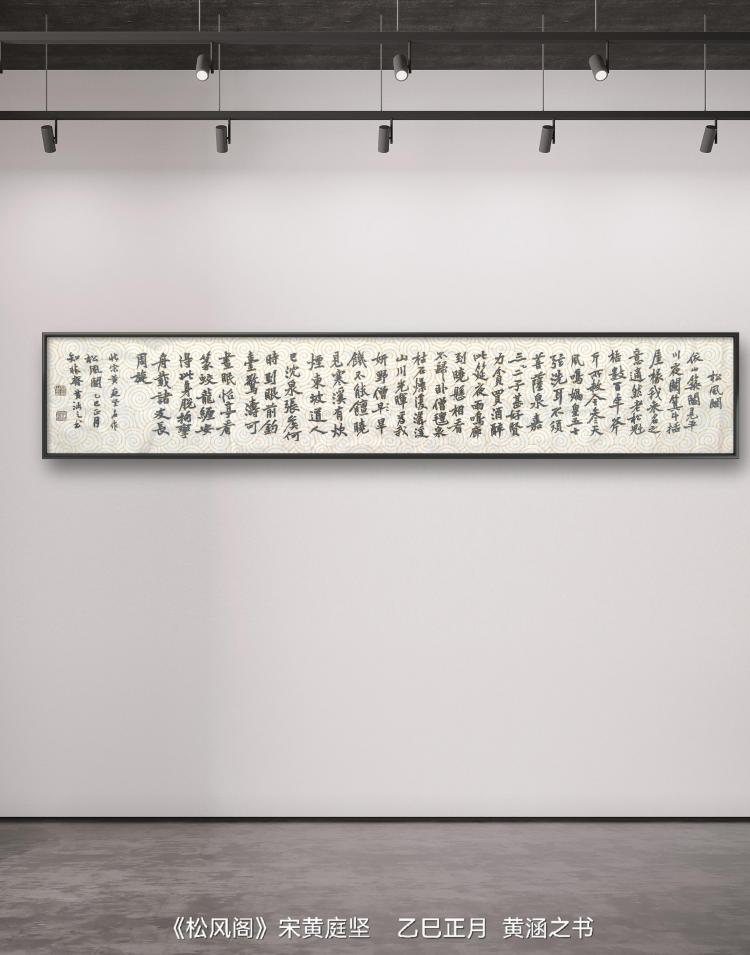 松風閣
依山築閣見平
川夜闌箕斗插
屋椽我來名之
意適然老松魁
梧數百年斧
斤所赦今參天
風鳴媧皇五十
弦洗耳不須
菩薩泉嘉
三二子甚好賢
力貧買酒醉
此筵夜雨鳴廊
到曉懸相看
不歸卧僧氈泉
枯石燥復潺湲
山川光暉為我
妍野僧早旱
饑不能饘曉
見寒溪有炊
煙東坡道人
已沈泉張侯何
時到眼前釣
臺驚濤可
晝眠怡亭看
篆蛟龍纏安
得此身脫拘攣
舟載諸友長
周旋
此宋黃庭堅名作
松風閣乙巳正月
黃涵之書
《松风阁》宋黄庭坚 乙巳正月 黄涵之书